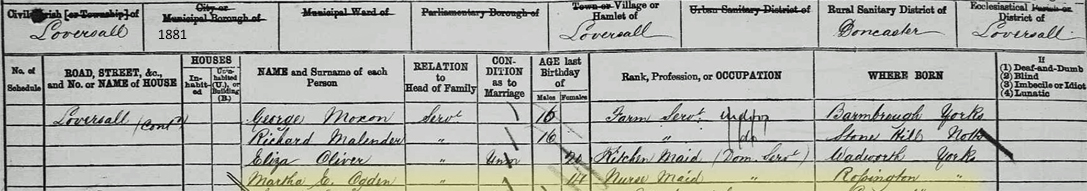 Civil Parish [or Township] of Loversall
1881
City or Municipal Borough of
Municipal Ward of
Parliamentary Borough of
Town or Village or Hamlet of Loversall
Urban Sanitary District of
Rural Sanitary District of Doncaster
Ecclesiastical Parish or District of Loversall
No. of Schedule
ROAD, STREET, &c., and No. or NAME of HOUSE
HOUSES
In-habit-ed
Un-inhabited (U.), or Building (B.)
NAME and Surname of each Person
RELATION to Head of Family
CON-DITION as to Marriage
AGE last Birthday of
Males Females
Rank, Profession, or OCCUPATION
WHERE BORN
If
(1) Deaf-and-Dumb
(2) Blind
(3) Imbecile or Idiot
(4) Lunatic
Loversall (Contd) George Moxon Servt 16 Farm Servt indoor Barmbrough Yorks
Richard Malender " 16 " " do Stone Hill Notts
Eliza Oliver " Unm Kitchen Maid (Dom. Servt) Wadworth Yorks
Martha E. Ogden " 14 Nurse Maid " Rossington "